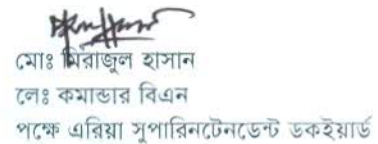 মোঃ মিরাজুল হাসান
লেঃ কমান্ডার বিএন
পক্ষে এরিয়া সুপারিনটেনডেন্ট ডকইয়ার্ড